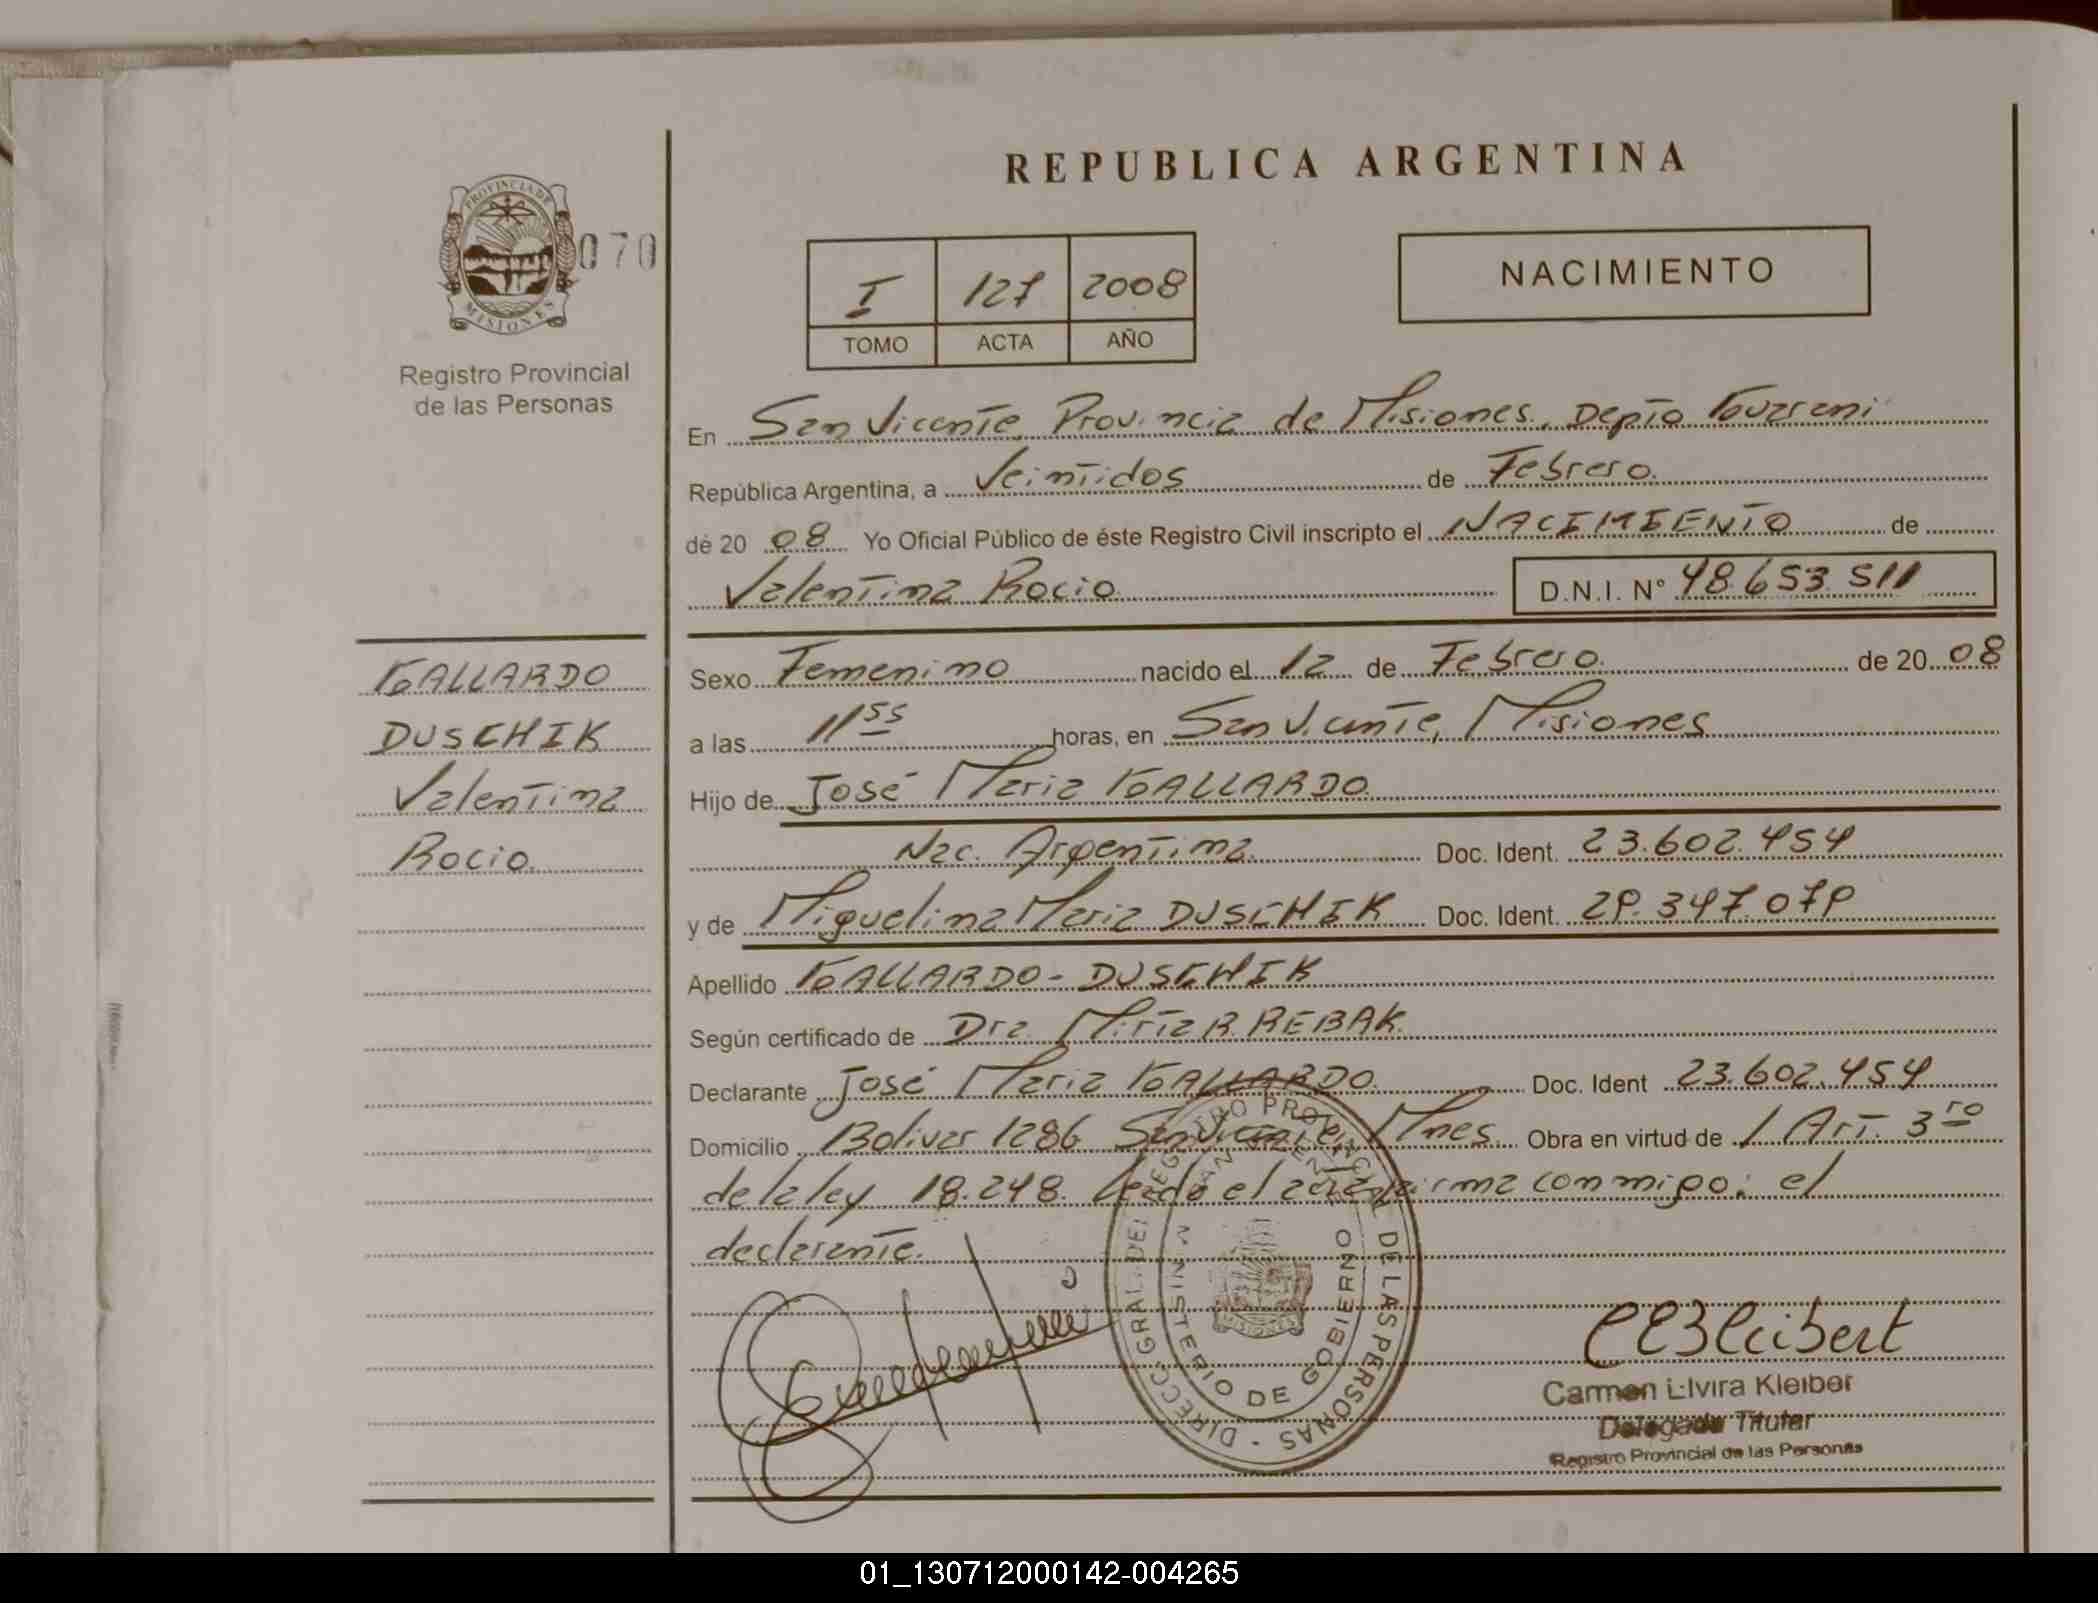 REPUBLICA ARGENTINA
PROVINCIA DE MISIONES
070
Registro Provincial
de las Personas
I 127 2008
TOMO ACTA AÑO
NACIMIENTO
En San Vicente Provincia de Misiones, Depto Guarani
República Argentina, a Veintidos de Febrero.
de 20 08 Yo Oficial Público de éste Registro Civil inscripto el NACIMIENTO de
Valentina Rocio D.N.I. N° 48.653.511
GALLARDO
DUSCHIK
Valentina
Rocio.
Sexo Femenino nacido el 12 de Febrero. de 20 08
a las 11 55 horas, en San Vicente, Misiones
Hijo de José Maria GALLARDO
Nac. Argentina. Doc. Ident. 23.602.454
y de Miguelina Maria DUSCHIK Doc. Ident. 29.347.079
Apellido GALLARDO - DUSCHIK
Según certificado de Dra. Mirta R. REBAK.
Declarante José Maria GALLARDO. Doc. Ident 23.602.454
Domicilio Bolivar 1286 San Vicente, Mnes. Obra en virtud de / Art. 3ro
de la ley 18.248. Leido el acta firma conmigo: el
declarante.
DIRECC. GRAL. DEL REGISTRO PROVINCIAL DE LAS PERSONAS
SAN VICENTE
MINISTERIO DE GOBIERNO
MISIONES
Carmen Elvira Kleiber
Delegada Titular
Registro Provincial de las Personas
01_130712000142-004265